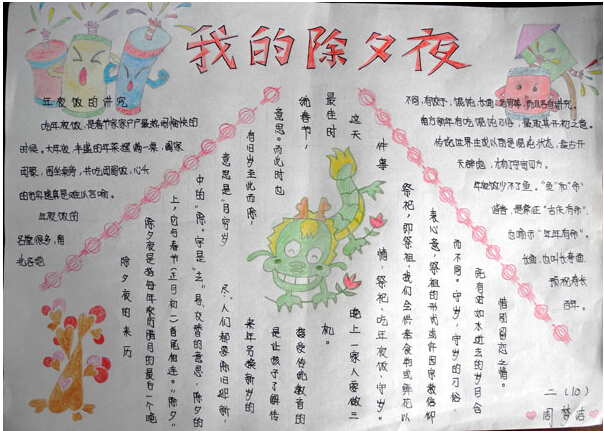 我的除夕夜
年夜饭的讲究
吃年夜饭,是春节家家户户最热闹愉快的
时候。大年夜,丰盛的年菜摆满一桌,阖家
团聚,围坐桌旁,共吃团圆饭,心头
的充实感真是难以言喻。
年夜饭的
名堂很多,南
北各地
不同,有饺子、馄饨、长面、元宵等,而且各有讲究。
南方新年有吃馄饨习俗,最取其开初之意。
传说世界生成以前是混沌状态,盘古开
天辟地,才有了宇宙四方。
年夜饭少不了鱼。“鱼”和“余”
谐音,是象征“吉庆有余”,
也喻示“年年有余”。
长面,也叫长寿面。
预祝寿长
百年。
除夕夜的来历
除夕夜是指每年农历腊月的最后一个晚
上,它与春节(正月初一)首尾相连。“除夕”
中的“除”字是“去;易;交替”的意思,除夕的
意思是“月穷岁
尽”,人们都要除旧迎新,
有旧岁至此而除,
来年另换新岁的
意思。而此时也
是让孩子了解传
统春节,
接受传统教育的
最佳时
机。
这天
晚上一家人要做三
件事
情:祭祀、吃年夜饭、守岁。
祭祀,即祭祖,我们会供素食和或鲜花以
表心意,祭祖的形式或许因宗教信仰
而不同。守岁,守岁的习俗,
既有对如水逝去的岁月含
惜别留恋之情。
二(10)
周梦洁